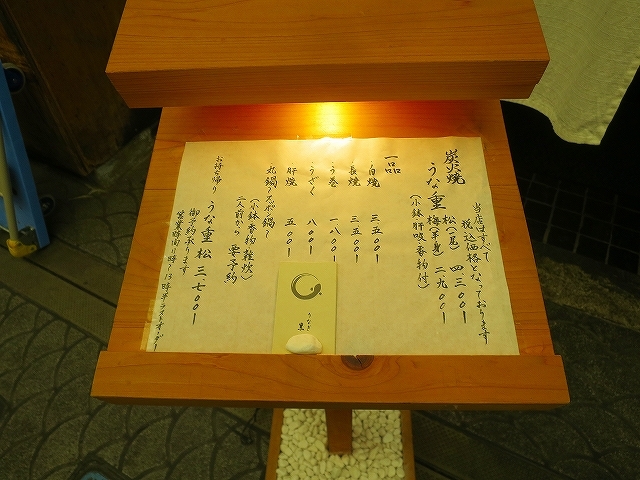 当店はすべて
税込価格となっております
炭火焼
うな重 松(一尾) 四三〇〇ー
梅(半身) 二九〇〇ー
(小鉢 肝吸 香物付)
一品
白焼 三五〇〇ー
長焼 三五〇〇ー
う巻 一八〇〇ー
うざく 八〇〇ー
肝焼 五〇〇ー
(小鉢 香物 雑炊)
二人前から 要予約
お持ち帰り
うな重 松 三七〇〇ー
御予約承ります
営業時間 11時〜13時半ラストオーダー
うなぎ